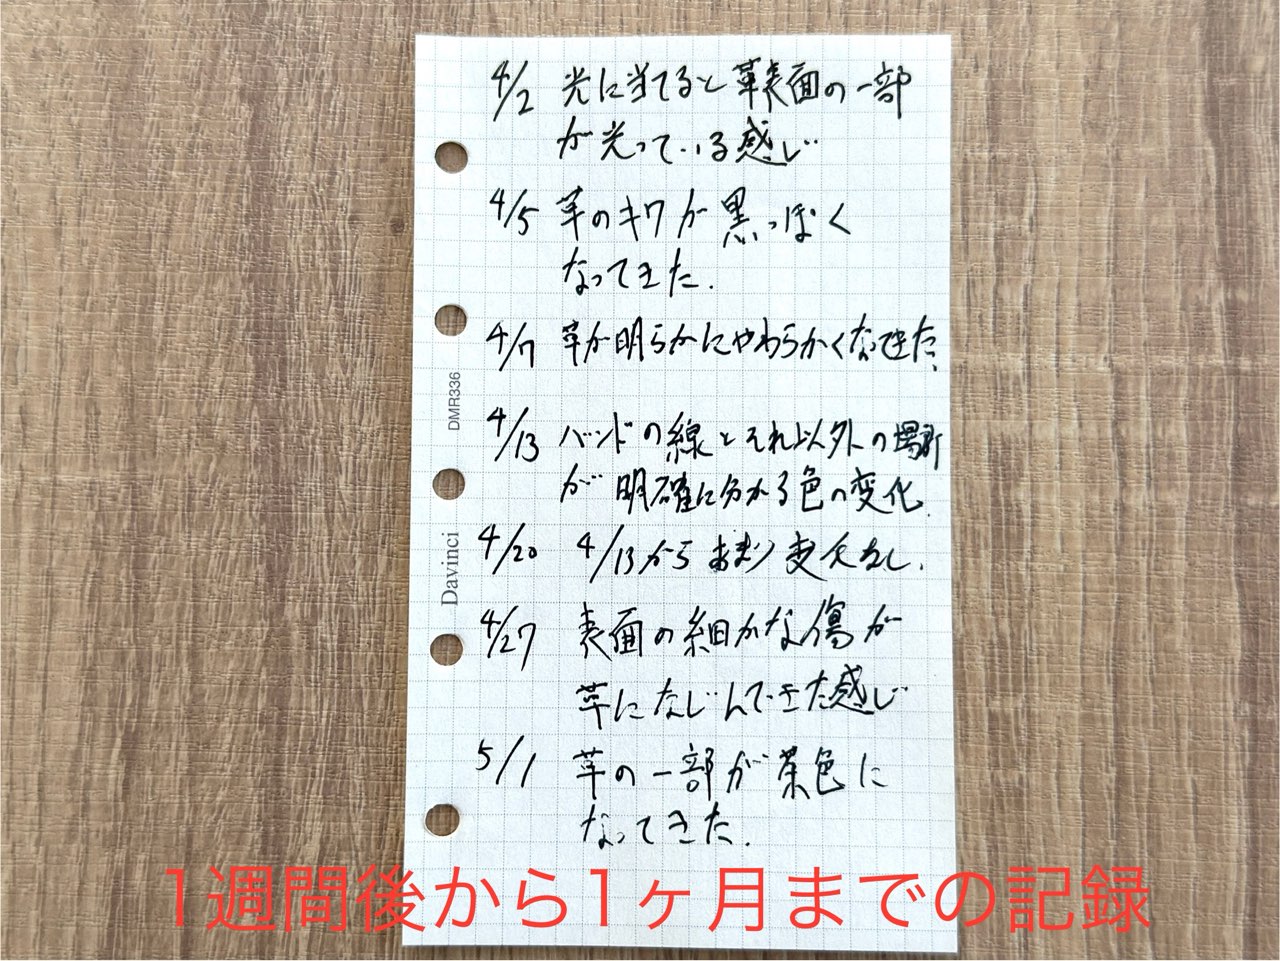 4/2 光に当てると革表面の一部
が光っている感じ
4/5 革のキワが黒っぽく
なってきた.
4/7 革が明らかにやわらかくなってきた
4/13 バンドの線とそれ以外の場所
が明確に分かる色の変化
4/20 4/13からあまり変化なし.
4/27 表面の細かな傷が
革になじんできた感じ
5/1 革の一部が茶色に
なってきた.
DMR336
Davinci
1週間後から1ヶ月までの記録